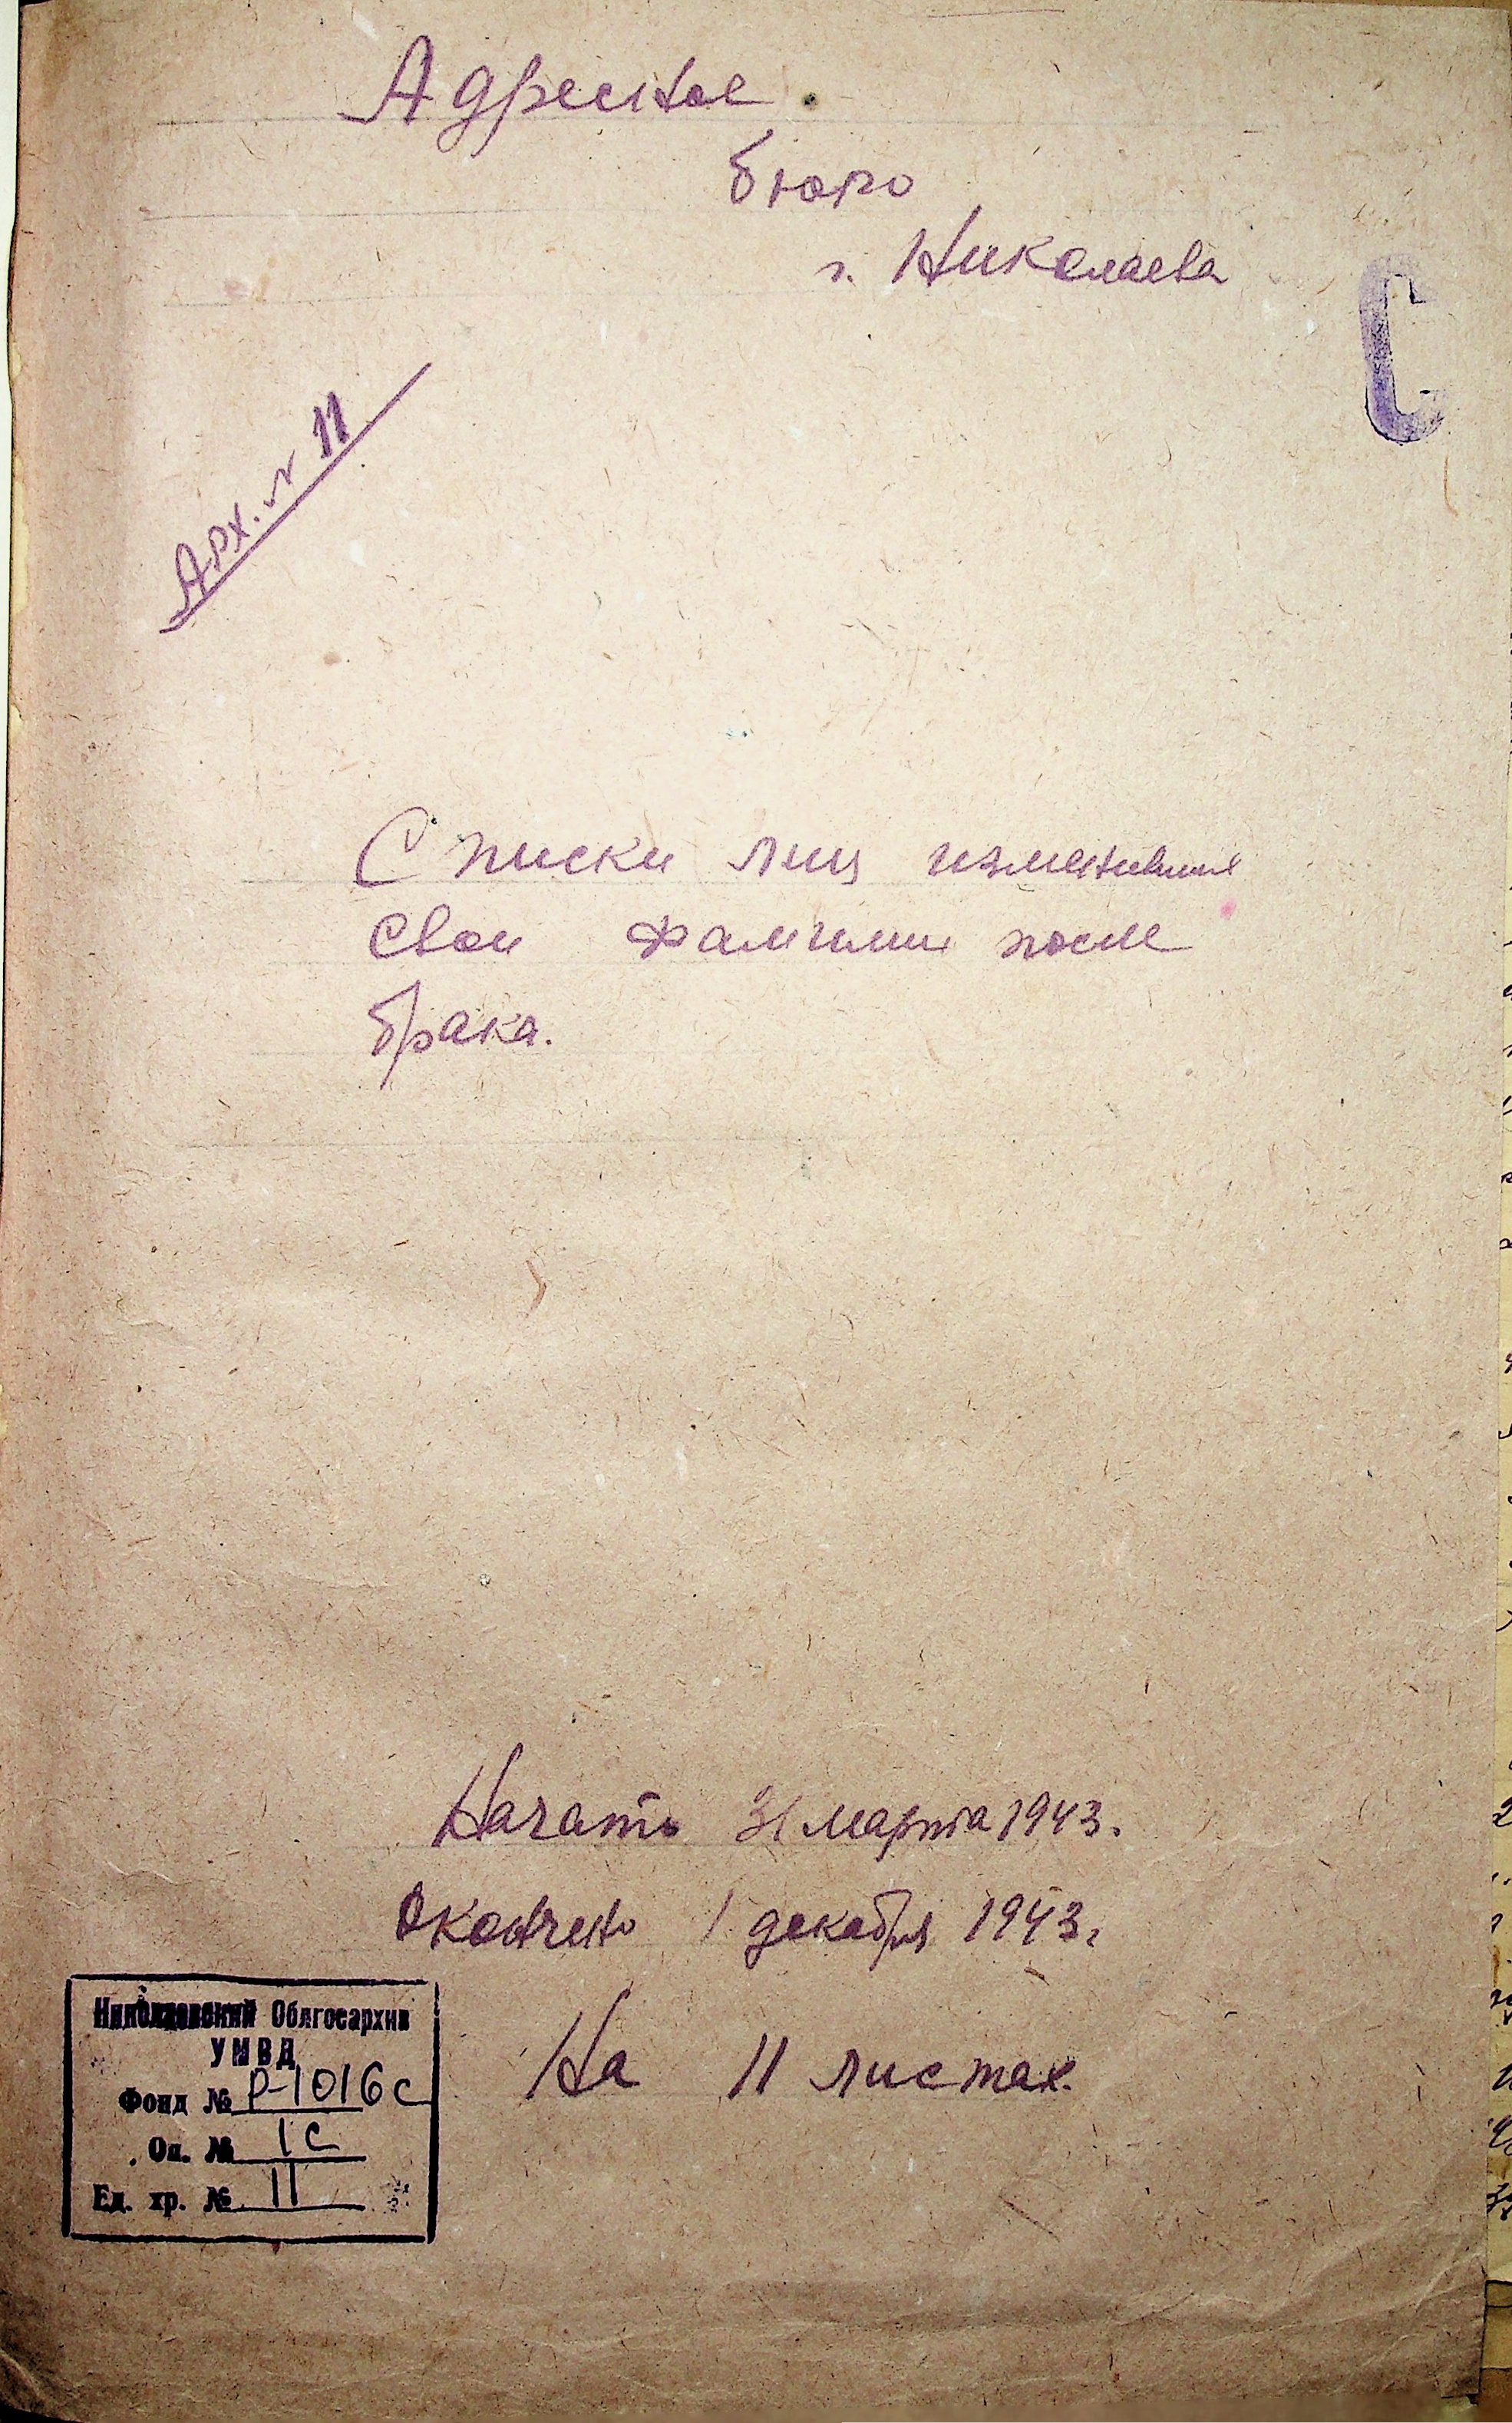 Адресное
бюро
г. Николаева
С
Арх. № 11
Списки лиц изменивших
свои фамилии после
брака.
Начато 31 марта 1943.
Окончено 1 декабря 1943г
На 11 листах.
Николаевский Облгосархив
УМВД
Фонд № Р-1016с
Оп. № 1с
Ед. хр. № 11